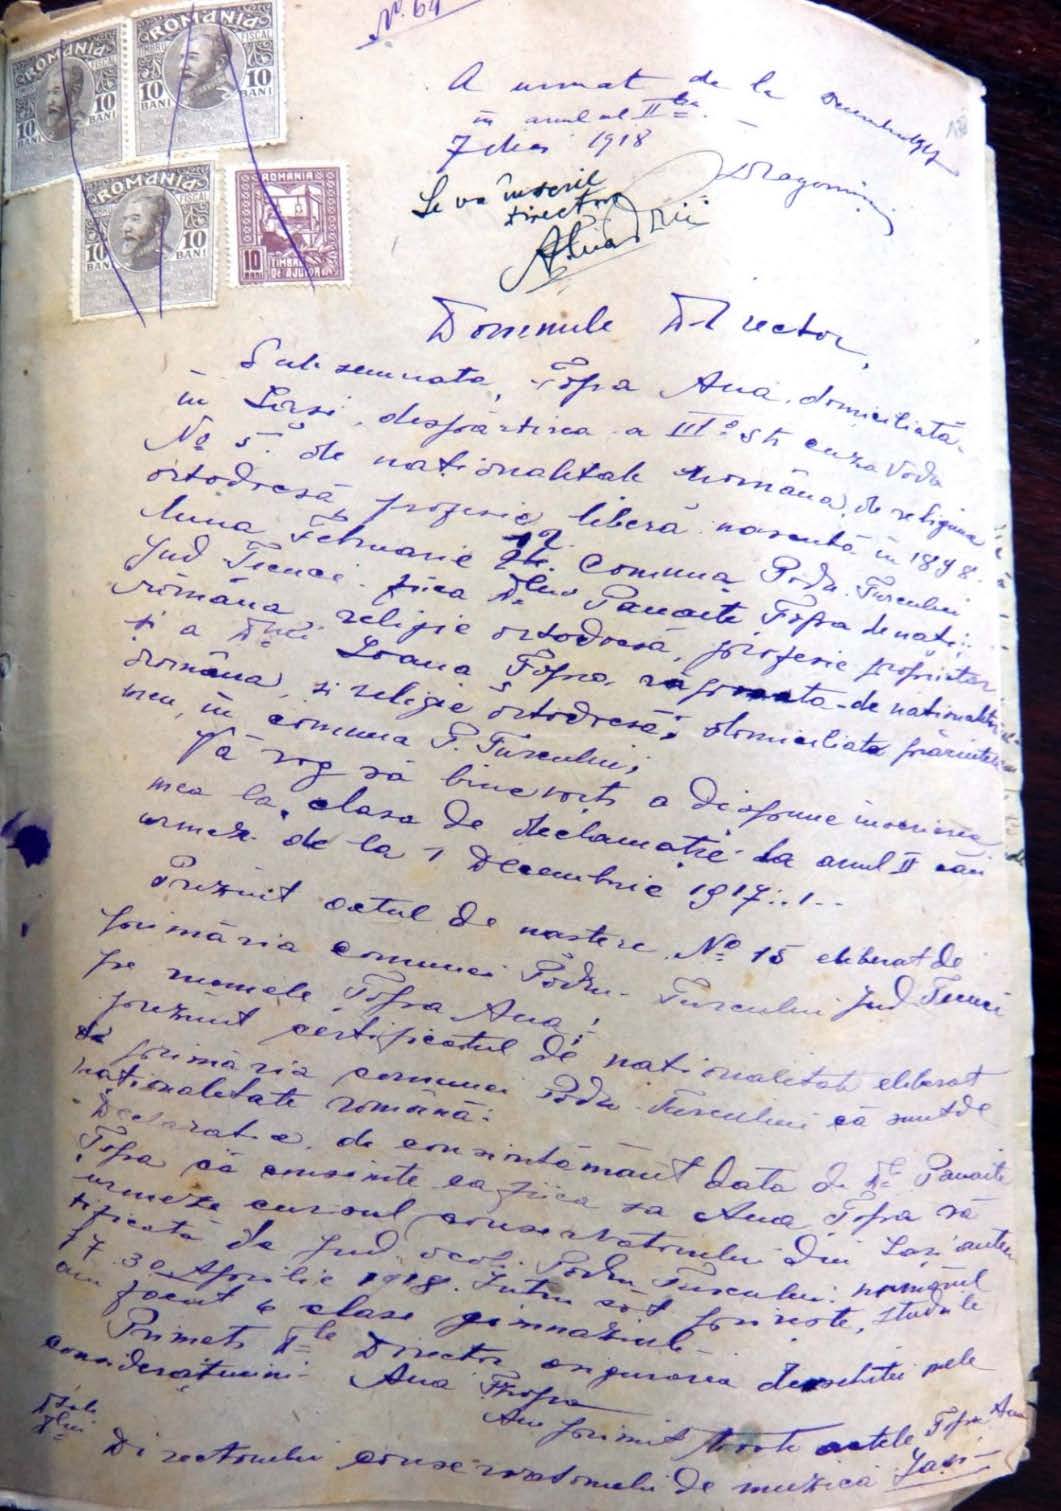 No. 64
ROMANIA
TIMBRU FISCAL
10 BANI 10 BANI
ROMANIA
FISCAL
10 BANI 10 BANI
ROMANIA
FISCAL
10 BANI 10 BANI
ROMANIA
10 BANI TIMBRU DE AJUTOR
A urmat de la Decembrie 1917
în anul al II lea.
7 Mai 1918
Dragomir
Se va înscrie
Director
Domnule Director,
Subsemnata, Țopa Ana, domiciliată
în Iași, despărțirea a III-a str. Cuza Vodă
No 5. de naționalitate Română, de religiune
ortodoxă, profesie liberă născută în 1898.
luna Februarie 12. Comuna Podu Turcului
Jud Tecuci. fiica Dlui Panaite Țopa de naț.
română religie ortodoxă, profesie proprietar
și a Dnei Ioana Țopa, de naționalitate
română, și religie ortodoxă; domiciliată părinții
mei, în comuna P. Turcului;
Vă rog să binevoiți a dispune înscrierea
mea la clasa de declamație la anul II căci
urmez de la 1 Decembrie 1917.
Prezint actul de naștere No 15 eliberat de
primăria comunei Podu-Turcului Jud Tecuci
pe numele Țopa Ana;
prezint certificatul de naționalitate eliberat
de primăria comunei Podu Turcului că sunt de
naționalitate română.
Declarație de consimțământ dată de Dl Panaite
Țopa că consimte ca fiica sa Ana Țopa să
urmeze cursul conservatorului din Iași auten
tificată de Jud. ocol. Podu Turcului numărul
17. 30 Aprilie 1918. Întru cât privește, studiile
am făcut 6 clase gimnaziale
Primiți Dle Director asigurarea deosebitei mele
considerațiuni. Ana Țopa
Am primit toate actele Țopa Ana
Dsale
Dlui Directorului conservatorului de muzică Iași